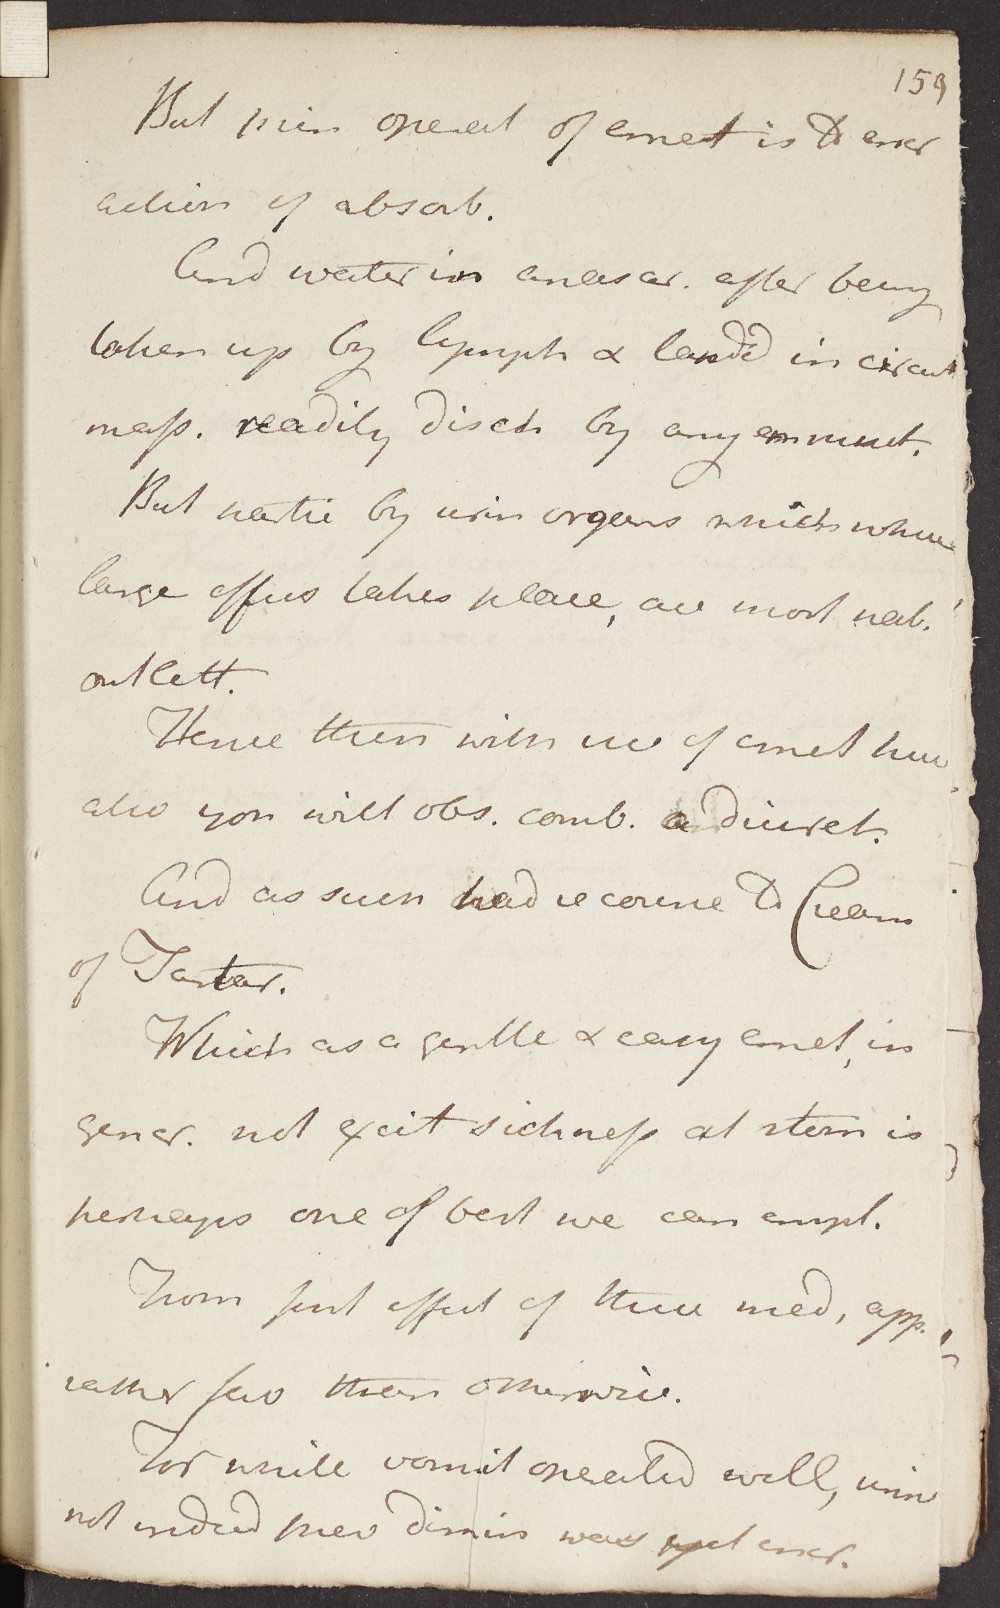 159
But prin operat of emet is to encr
action of absorb.
And water in anasar. after being
taken up by lymph & landd in circul
mass. readily disch by any emunct.
But partic by urin organs which where
large effus takes place, are most nat.
outlett.
Hence then with use of emet here
also you will obs. comb. a diuret.
And as such had recourse to Cream
of Tartar.
Which as a gentle & easy emet, in
gener. not excit sickness at stom is
perhaps one of best we can empl.
From first effect of these med, app.
rather fav than otherwise.
For while vomit operated well, urine
not indeed prev dimin was yet encr.